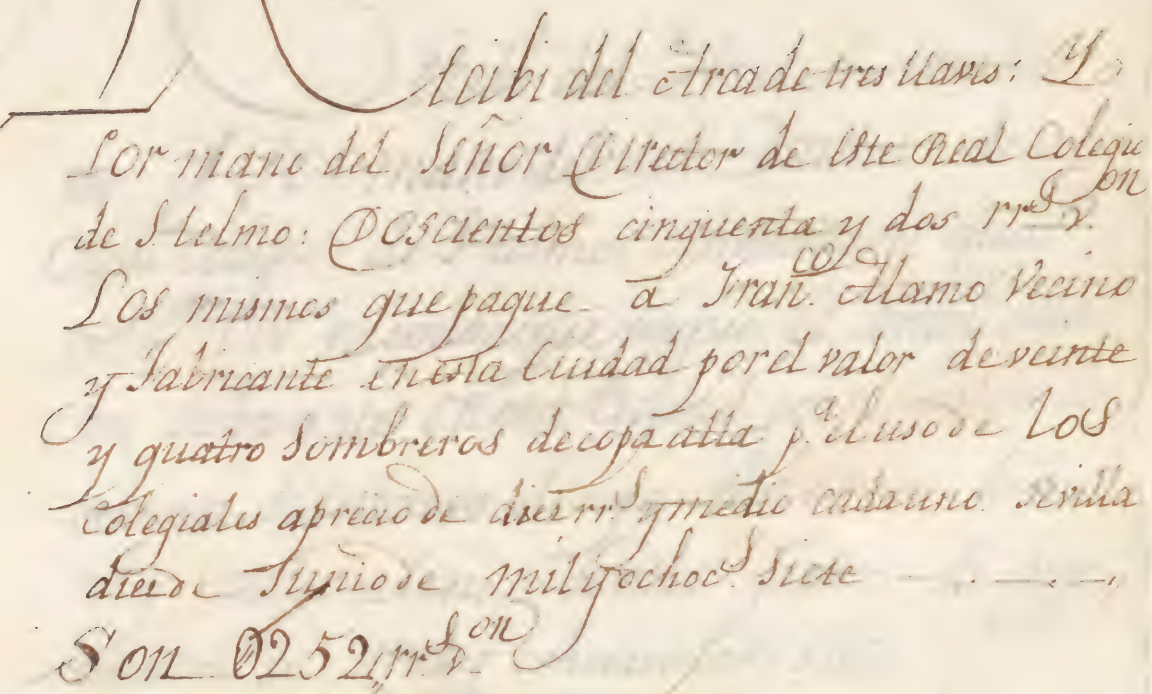 Recibi del Arca de tres llaves: Y
Por mano del Señor Director de este Real Colegio
de S. Telmo: Doscientos cinquenta y dos rr.s v.on
Los mismos que pague a Fran.co Alamo Vecino
y Fabricante en esta Ciudad por el valor de veinte
y quatro Sombreros de copa alta p.a el uso de Los
Colegiales a precio de diez rr.s y medio cada uno. Sevilla
diez de Junio de mil y ochoc.s siete
Son 0252,, rr.s v.on